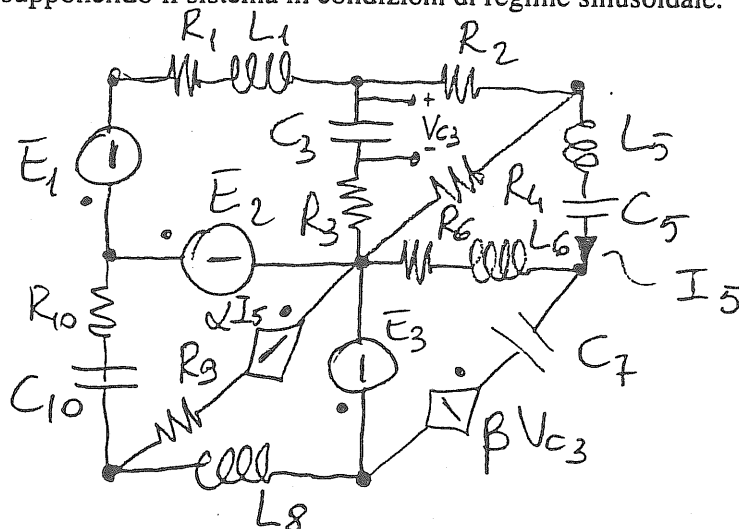 supponendo il sistema in condizioni di regime sinusoidale.
R1 L1 R2
C3 + Vc3 -
L5
E̅1
E̅2
R3 R4 C5
R6 L6
I5
R10
αI5
E̅3
R9
C7
C10
βVc3
L8